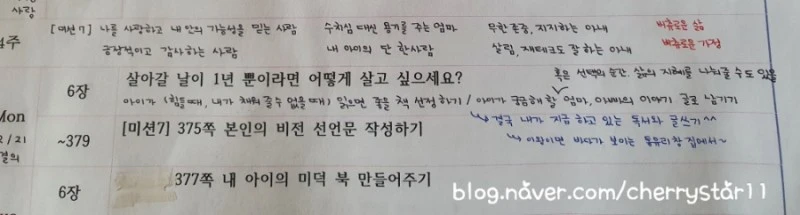 사랑
[미션7] 나를 사랑하고 내 안의 가능성을 믿는 사람 수치심 대신 용기를 주는 엄마 무한 존중, 지지하는 아내 버츄로운 삶
긍정적이고 감사하는 사람 내 아이의 단 한사람 살림, 재테크도 잘 하는 아내 버츄로운 가정
6장 살아갈 날이 1년 뿐이라면 어떻게 살고 싶으세요? 혹은 선택의 순간, 삶의 지혜를 나눠줄 수도 있을
아이가 (힘들 때, 내가 채워줄 수 없을 때) 읽으면 좋을 책 선정하기 / 아이가 궁금해 할 엄마, 아빠의 이야기 글로 남기기
Mon
2/21
~379 [미션7] 375쪽 본인의 비전 선언문 작성하기 결국 내가 지금 하고 있는 독서와 글쓰기^^
이왕이면 바다가 보이는 통유리창 집에서~
6장 377쪽 내 아이의 미덕 북 만들어주기
blog.naver.com/cherrystar11